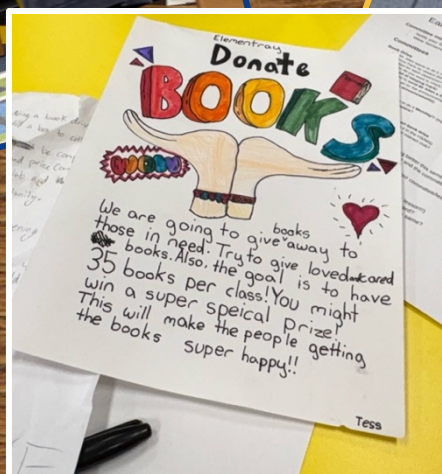 Elementray
Donate
BOOKS
We are going to give books away to
those in need. Try to give loved and cared
books. Also, the goal is to have
35 books per class! You might
win a super speical prize!
This will make the people getting
the books super happy!!
Tess
Committees
a book
a box to
be